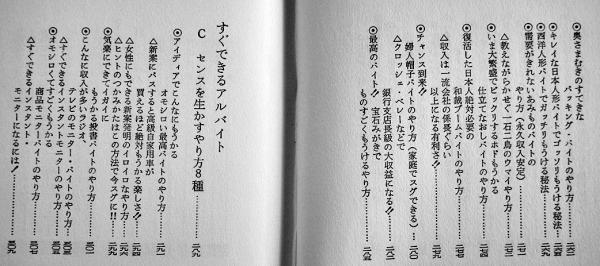 ◎奥さまむきのすてきな
パッキング・バイトのやり方………二六五
◎キレイな日本人形バイトでゴッソリもうける秘法…二六六
◎西洋人形バイトでガッチリもうける秘法…
◎需要がきれないあみものバイトの
やり方(永久収入安定)
△教えながらかせぐ一石二鳥のウマイやり方
◎いま大繁盛でビックリするホドもうかる
仕立てなおしバイトのやり方………二七四
◎復活した日本人絶対必要の
和裁ブームバイトのやり方………
△収入は一流会社の係長ぐらい
以上になる有利さ!!………
◎チャンス到来!!
婦人帽子バイトのやり方(家庭でスグできる)…
△クロッシェ・ベレーなどで
銀行支店長級の大収益になる!!………
◎最高のバイト!! 宝石みがきで
ものすごくもうけるやり方………二八五
すぐできるアルバイト
C センスを生かすやり方8種………二八九
◎アイディアでこんなにもうかる
オモシロい最高バイトのやり方………
△新案にパスすると高級自家用車が
買えるほど絶対もうかる楽しさ!!………
△女性にもできる新案発明のイロイロなやり方………
△ヒントのつかみかたはこの方法で今スグに!!………
◎気楽にできてイガイに
もうかる投書バイトのやり方………
◎こんなに収入が多いラジオ
テレビのモニター・バイトのやり方………
△すぐできるインスタントモニターのやり方………三〇五
◎オモシロくてすごくもうかる
商品モニターバイトのやり方………三〇七
△すぐできるインスタント・
モニターになるには!………三〇九